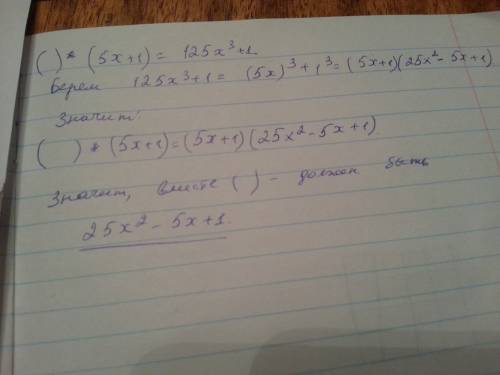 ( ) * (5x+1) = 125x³+1
Берем 125x³+1 = (5x)³+1³=(5x+1)(25x²-5x+1)
Значит:
( ) * (5x+1)=(5x+1)(25x²-5x+1)
Значит, вместо ( ) - должен быть
25x²-5x+1.